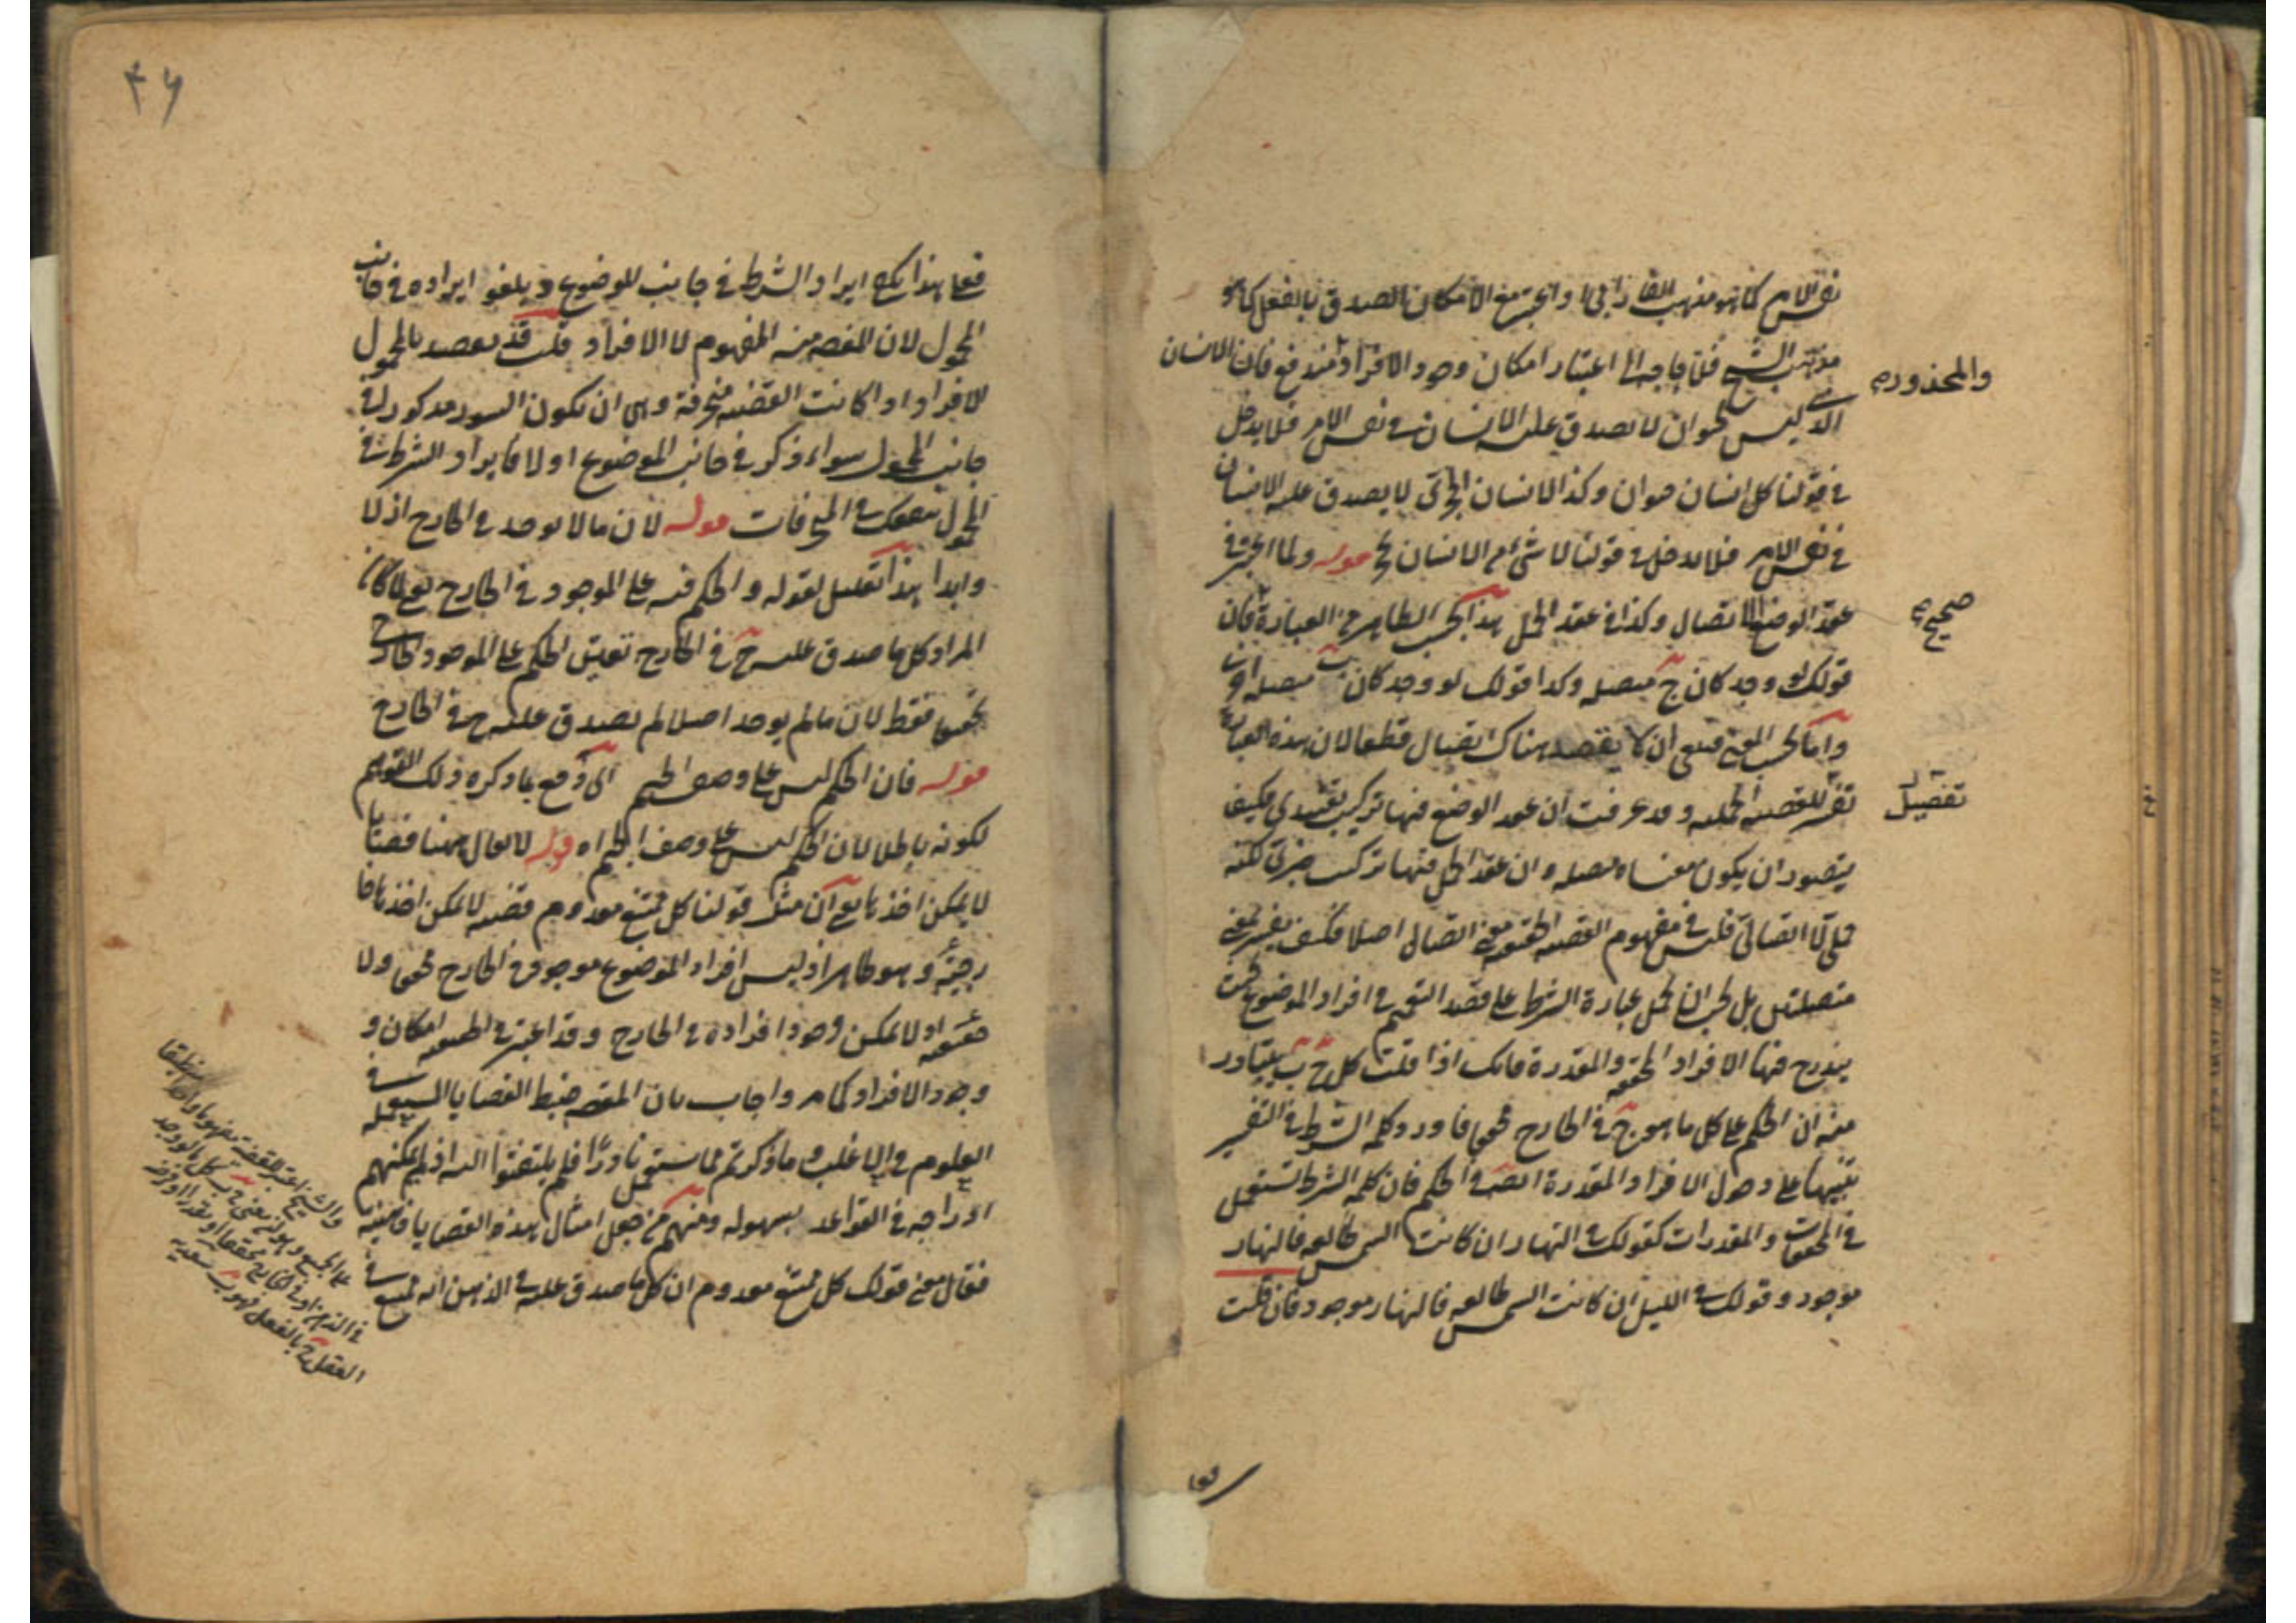 نفس الامر كما هو مذهب الفارابى او اعتبر مع الامكان الصدق بالفعل كما هو
مذهب الشيخ فلا حاجة الى اعتبار امكان وجود الافراد مندفع فان الانسان
والمحذور
الذى ليس بحيوان لا يصدق عليه الانسان فى نفس الامر فلا يدخل
فى قولنا كل انسان حيوان وكذا الانسان الحجرى لا يصدق عليه الانسان
فى نفس الامر فلا يدخل فى قولنا لا شئ من الانسان بحجر قوله ولما اعتبر فى
عقد الوضع الاتصال وكذا فى عقد الحمل هذا بحسب الظاهر من العبارة فان
صحيح
قولك لو وجد كان ج متصلة وكذا قولك لو وجد كان ب متصلة اخرى
واما بحسب المعنى فينبغى ان لا يقصد هناك اتصال قطعا لان هذه العبارة
تفسير للقضية الحملية وقد عرفت ان عقد الوضع فيها تركيب تقييدى فكيف
تفصيل
يتصور ان يكون معناه متصلة وان عقد الحمل فيها تركيب خبرى لكنه
حملى لا اتصالى فليس فى مفهوم القضية الحقيقية معنى اتصال اصلا فكيف يفسر بمعنى
متصلتين بل يجب ان تحمل عبارة الشرط على قصد التعميم فى افراد الموضوع بحيث
يندرج فيها الافراد المحققة والمقدرة فانك اذا قلت كل ج ب يتبادر
منه ان الحكم على كل ما هو ج فى الخارج محققا فاورد كلمة الشرط فى التفسير
تنبيها على دخول الافراد المقدرة ايضا فى الحكم فان كلمة الشرط تستعمل
فى المحققات والمقدرات كقولك فى النهار ان كانت الشمس طالعة فالنهار
موجود وقولك فى الليل ان كانت الشمس طالعة فالنهار موجود فان قلت
فعلى
۴۶
فعلى هذا يصح ايراد الشرط فى جانب الموضوع ويلغو ايراده فى جانب
المحمول لان المقصود منه المفهوم لا الافراد قلت قد يقصد بالمحمول
الافراد اذا كانت القضية منحرفة وهى ان يكون السور مذكورا فى
جانب المحمول سواء ذكر فى جانب الموضوع او لا فايراد الشرط فى
المحمول ينفعك فى المنحرفات قوله لان ما لا يوجد فى الخارج ازلا
وابدا هذا تعليل لقوله والحكم فيه على الموجود فى الخارج يعنى لما كان
المراد كل ما صدق عليه ج فى الخارج تعين الحكم على الموجود الخارجى
محققا فقط لان ما لم يوجد اصلا لم يصدق عليه ج فى الخارج
قوله فان الحكم ليس على وصف الجيم اى دفع بما ذكره ذلك التوهم
لكونه باطلا لان الحكم ليس على وصف الجيم اه قوله لا يقال ههنا قضايا
لا يمكن اخذها يعنى ان مثل قولنا كل ممتنع معدوم قضية لا يمكن اخذها خا
رجية وهو ظاهر اذ ليس افراد الموضوع موجودة فى الخارج محققا ولا
حقيقية اذ لا يمكن وجود افراده فى الخارج وقد اعتبر فى الحقيقية امكان و
وجود الافراد كما مر واجاب بان المقصود ضبط القضايا المستعملة فى
العلوم فى الاغلب وما ذكرتم مما يستعمل نادرا فلم يلتفتوا اليه اذ لم يمكنهم
ادراجه فى القواعد بسهولة ومنهم من جعل امثال هذه القضايا ذهنية
فقال معنى قولك كل ممتنع معدوم ان كل ما صدق عليه فى الذهن انه ممتنع فى